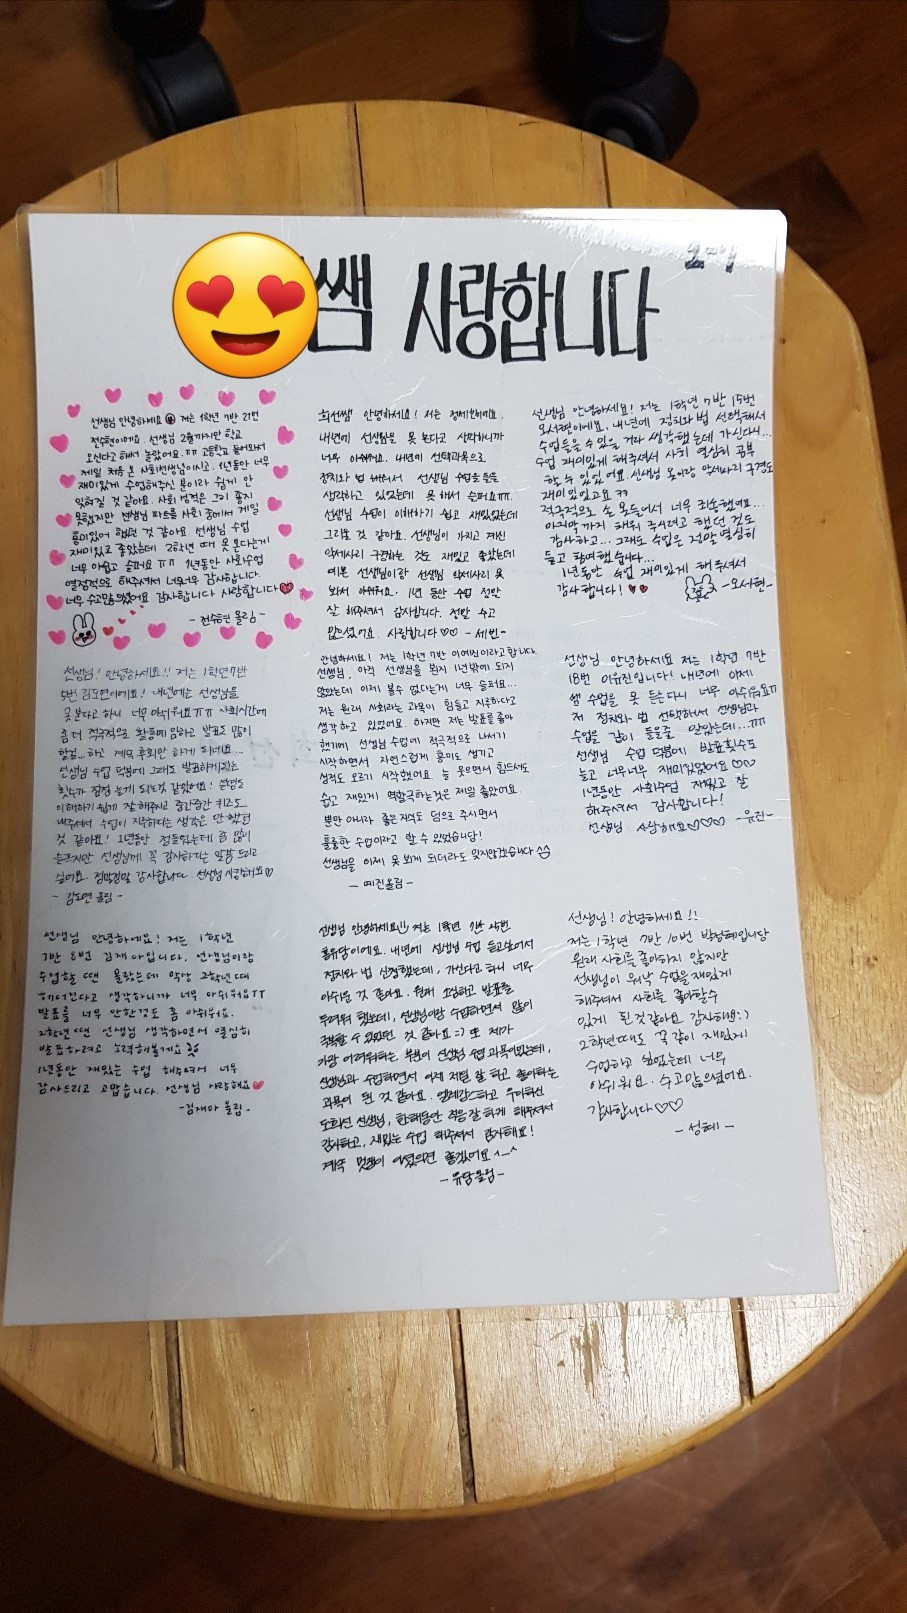 쌤 사랑합니다
선생님 안녕하세요 저는 1학년 7반 21번
전수현이에요. 선생님 2월까지만 학교
오신다고 해서 놀랐어요.ㅠㅠ 고등학교 들어와서
제일 처음 본 사회선생님이시고 1년동안 너무
재미있게 수업해주신 분이라 쉽게 안
잊혀질 것 같아요. 사회 성적은 그리 좋지
못했지만 선생님 파트를 사회 중에서 제일
흥미있어 했던 것 같아요 선생님 수업
재미있고 좋았는데 2학년 때 못 본다는게
너무 아쉽고 슬퍼요 ㅠㅠ 1년동안 사회수업
열정적으로 해주셔서 너무너무 감사합니다.
너무 수고많으셨어요 감사합니다 사랑합니다
- 전수현 올림 -
희선쌤 안녕하세요! 저는 정세빈이에요.
내년에 선생님을 못 본다고 생각하니까
너무 아쉬워요. 내년에 선택과목으로
정치와 법 해워서 선생님 수업을 들을
생각하고 있었는데 못 해서 슬퍼요ㅠㅠ.
선생님 수업이 이해하기 쉽고 재밌었는데
그리울 것 같아요. 선생님이 가지고 계신
악세사리 구경하는 것도 재밌고 좋았는데
예쁜 선생님이랑 선생님 악세사리 못
봐서 아쉬워요. 1년 동안 수업 정말
잘 해주셔서 감사합니다. 정말 수고
많으셨어요. 사랑합니다♡♡ - 세빈 -
선생님 안녕하세요! 저는 1학년 7반 15번
오서현이에요. 내년에 정치와법 선택해서
수업들을 수 있을 거라 생각했는데 가신다니...
수업 재미있게 해주셔서 사회 열심히 공부
할 수 있었어요. 선생님 옷이랑 악세사리 구경도
재미있었고요 ㅋㅋ
적극적으로 손 못들어서 너무 죄송했어요..
마지막까지 해워 주시려고 했던 것도
감사하고... 그래도 수업은 정말 열심히
듣고 참여했습니다...
1년동안 수업 재미있게 해주셔서
감사합니다! - 오서현-
선생님! 안녕하세요!! 저는 1학년 7반
5번 김도연이에요! 내년에는 선생님을
못본다고 하니 너무 아쉬워요ㅠㅠ 사회시간에
좀 더 적극적으로 활동에 임하고 발표도 많이
할걸...하고 계속 후회만 하게 되네요...
선생님 수업 덕분에 그래도 발표하게되는
횟수가 점점 늘게 되는것 같았어요! 수업도
이해하기 쉽게 잘 해주시고 중간중간 퀴즈도
내주셔서 수업이 지루하다는 생각은 안 했던
것 같아요! 1년동안 정들었는데 좀 많이
슬프지만 선생님께 꼭 감사하다는 말씀 드리고
싶어요. 정말정말 감사합니다. 선생님 사랑해요♡
- 김도연 올림 -
안녕하세요! 저는 1학년 7반 이예진이라고합니다.
선생님, 아직 선생님을 뵌지 1년밖에 되지
않았는데 이제 볼수 없다는게 너무 슬퍼요...
저는 원래 사회라는 과목이 힘들고 지루하다고
생각하고 있었어요. 하지만 저는 발표를 좋아
했기에 선생님 수업에 적극적으로 나서기
시작하면서 자연스럽게 흥미도 생기고
성적도 오르기 시작했어요. 늘 웃으면서 힘드셔도
쉽고 재미있게 역할극하는것은 제일 좋았어요.
뿐만 아니라 좋은지식도 덤으로 주시면서
훌륭한 수업이라고 할 수 있었습니다!
선생님을 이제 못 뵈게 되더라도 잊지않겠습니다
- 예진올림 -
선생님 안녕하세요 저는 1학년 7반
18번 이유진입니다! 내년에 이제
쌤 수업을 못 듣는다니 너무 아쉬워요ㅠ
저 정치와 법 선택해서 선생님과
수업을 같이 들을줄 알았는데...ㅠㅠ
선생님 수업 덕분에 발표횟수도
늘고 너무너무 재미있었어요♡♡
1년동안 사회수업 재밌고 잘
해주셔서 감사합니다!
선생님 사랑해요♡♡♡ -유진-
선생님 안녕하세요! 저는 1학년
7반 8번 김재아입니다. 선생님이랑
수업할 땐 몰랐는데 막상 2학년 때
헤어진다고 생각하니까 너무 아쉬워요ㅜㅜ
발표를 너무 안한것도 좀 아쉬워요.
2학년 땐 선생님 생각하면서 열심히
발표하려고 노력해볼게요
1년동안 재밌는 수업 해주셔서 너무
감사드리고 고맙습니다. 선생님 사랑해요
-김재아 올림-
선생님 안녕하세요!! 저는 1학년 7반 25번
홍유담이에요. 내년에 선생님 수업 듣고싶어서
정치와 법 신청했는데, 가신다고 하니 너무
아쉬운 것 같아요. 원래 소심하고 발표를
두려워 했는데, 선생님이랑 수업하면서 많이
극복할 수 있었던 것 같아요 :) 또 제가
가장 어려워하는 부분이 선생님 수업 과목이었는데,
선생님과 수업하면서 이제 제일 잘 하고 좋아하는
과목이 된 것 같아요. 엘레강스하고 우아하신
도희선 선생님, 한해동안 적응 잘 하게 해주셔서
감사하고, 재밌는 수업 해주셔서 감사해요!
계속 멋쟁이 여셨으면 좋겠어요 ^-^
-유담올림-
선생님! 안녕하세요!!
저는 1학년 7반 10번 박성혜입니당
원래 사회를 좋아하지 않지만
선생님이 워낙 수업을 재밌게
해주셔서 사회를 좋아할수
있게 된 것 같아요 감사해용:)
2학년때도 꼭 같이 재밌게
수업하고 싶었는데 너무
아쉬워요. 수고많으셨어요.
감사합니다♡♡
- 성혜 -